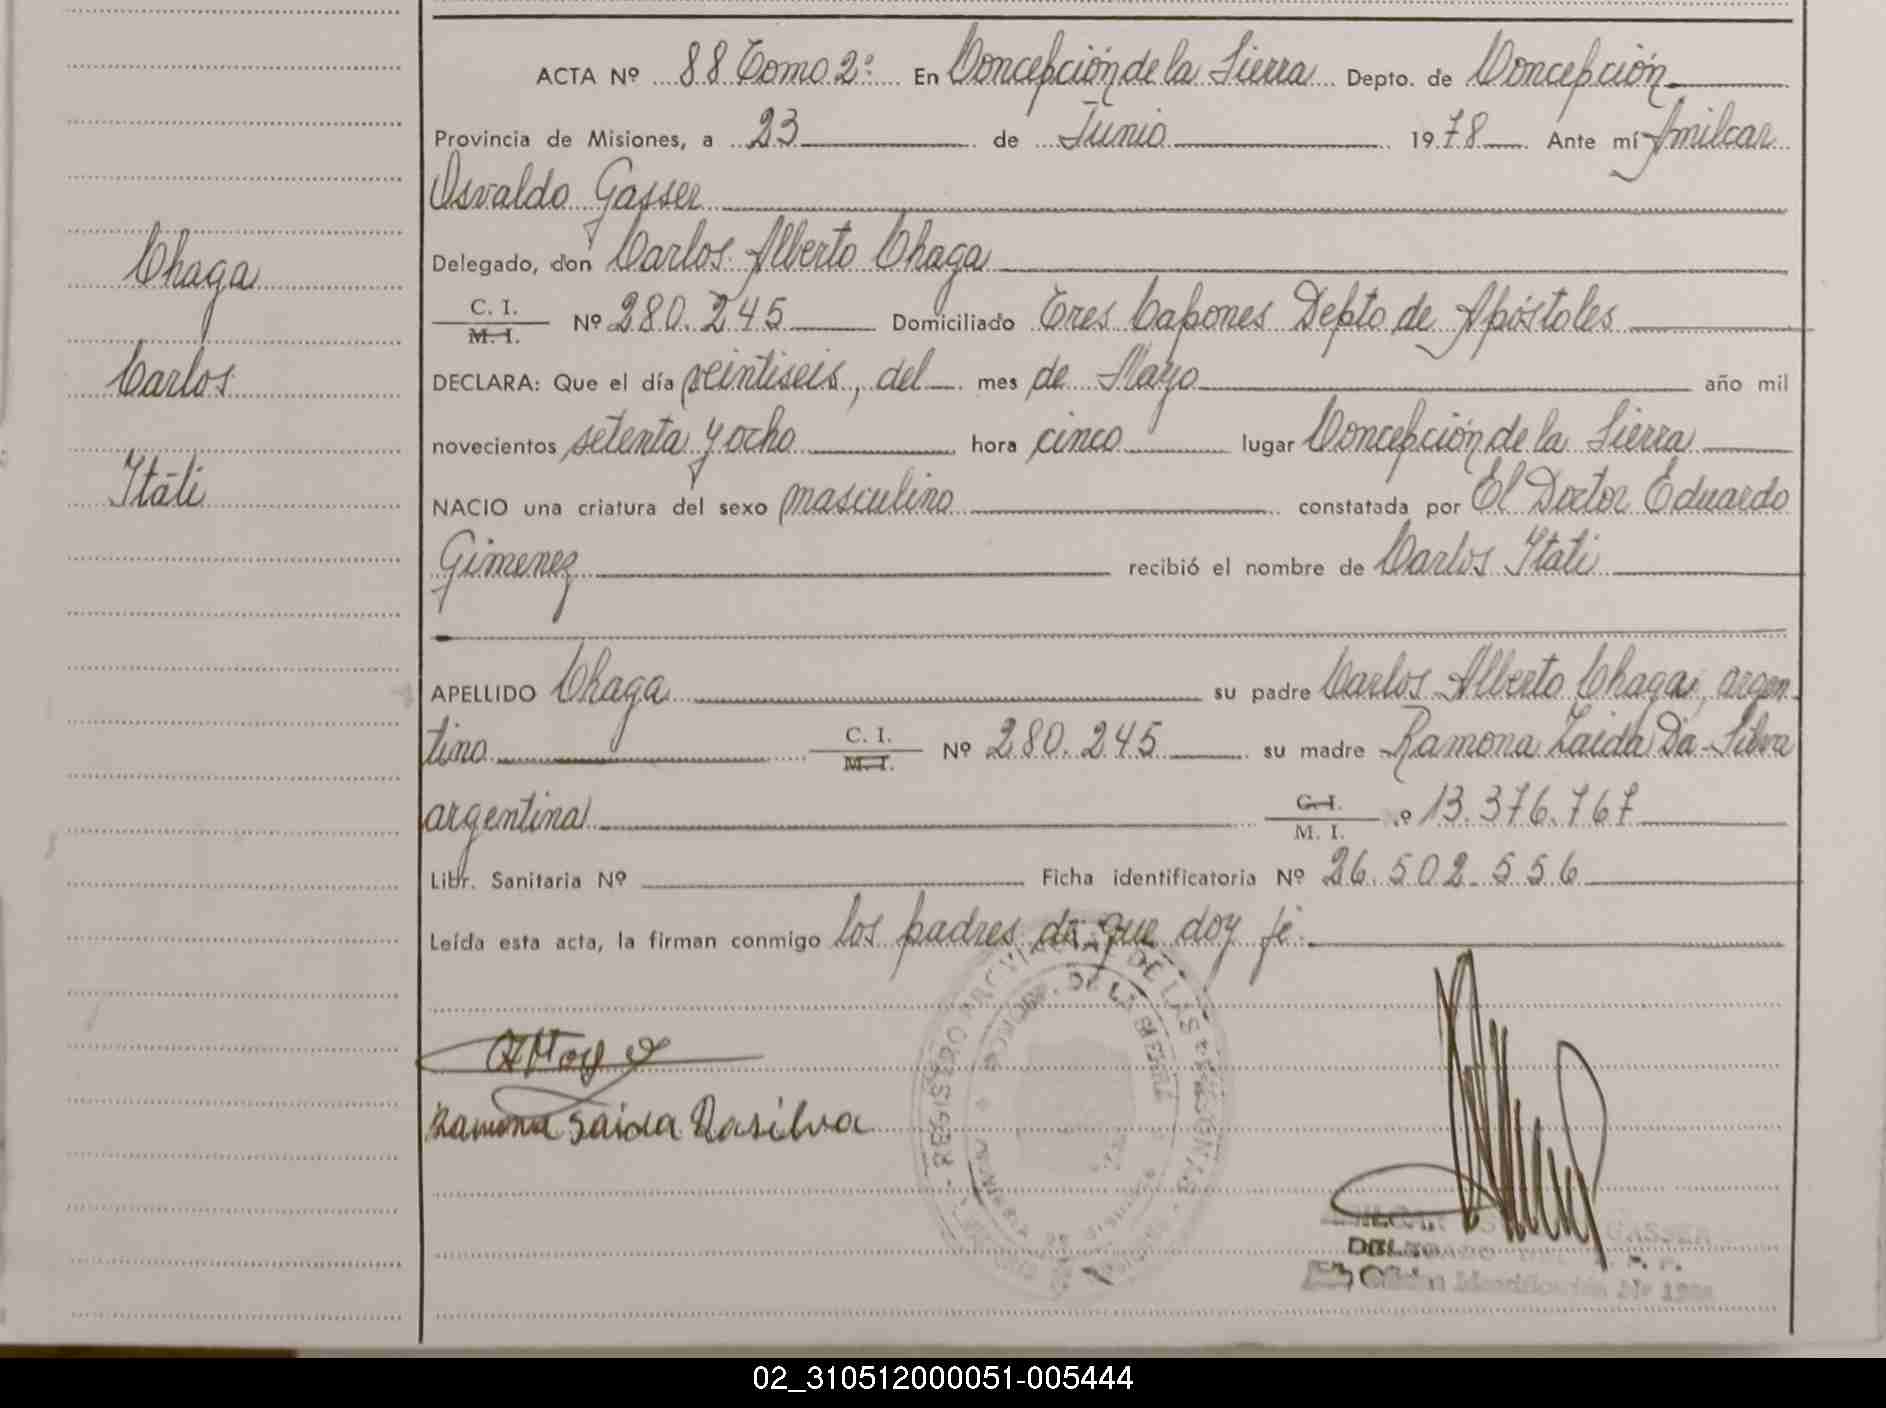 ACTA Nº 88 Tomo 2º En Concepción de la Sierra Depto. de Concepción
Provincia de Misiones, a 23 de Junio 1978 Ante mí Amilcar
Osvaldo Gasser
Delegado, don Carlos Alberto Chaga
C. I.
M. I.
Nº 280.245 Domiciliado Tres Capones Depto de Apóstoles
DECLARA: Que el día veintiseis, del mes de Mayo año mil
novecientos setenta y ocho hora cinco lugar Concepción de la Sierra
NACIO una criatura del sexo masculino constatada por El Doctor Eduardo
Gimenez recibió el nombre de Carlos Itati
APELLIDO Chaga su padre Carlos Alberto Chaga, argen-
tino C. I. M. I. Nº 280.245 su madre Ramona Zaida Da Silva
argentina C. I. M. I. º 13.376.767
Libr. Sanitaria Nº Ficha identificatoria Nº 26.502.556
Leída esta acta, la firman conmigo los padres de que doy fé.
Chaga
Carlos
Itati
Ramona Saida Dasilva
REGISTRO PROVINCIAL DE LAS PERSONAS
DE LA SIERRA
GASSER
DELEGADO
02_310512000051-005444